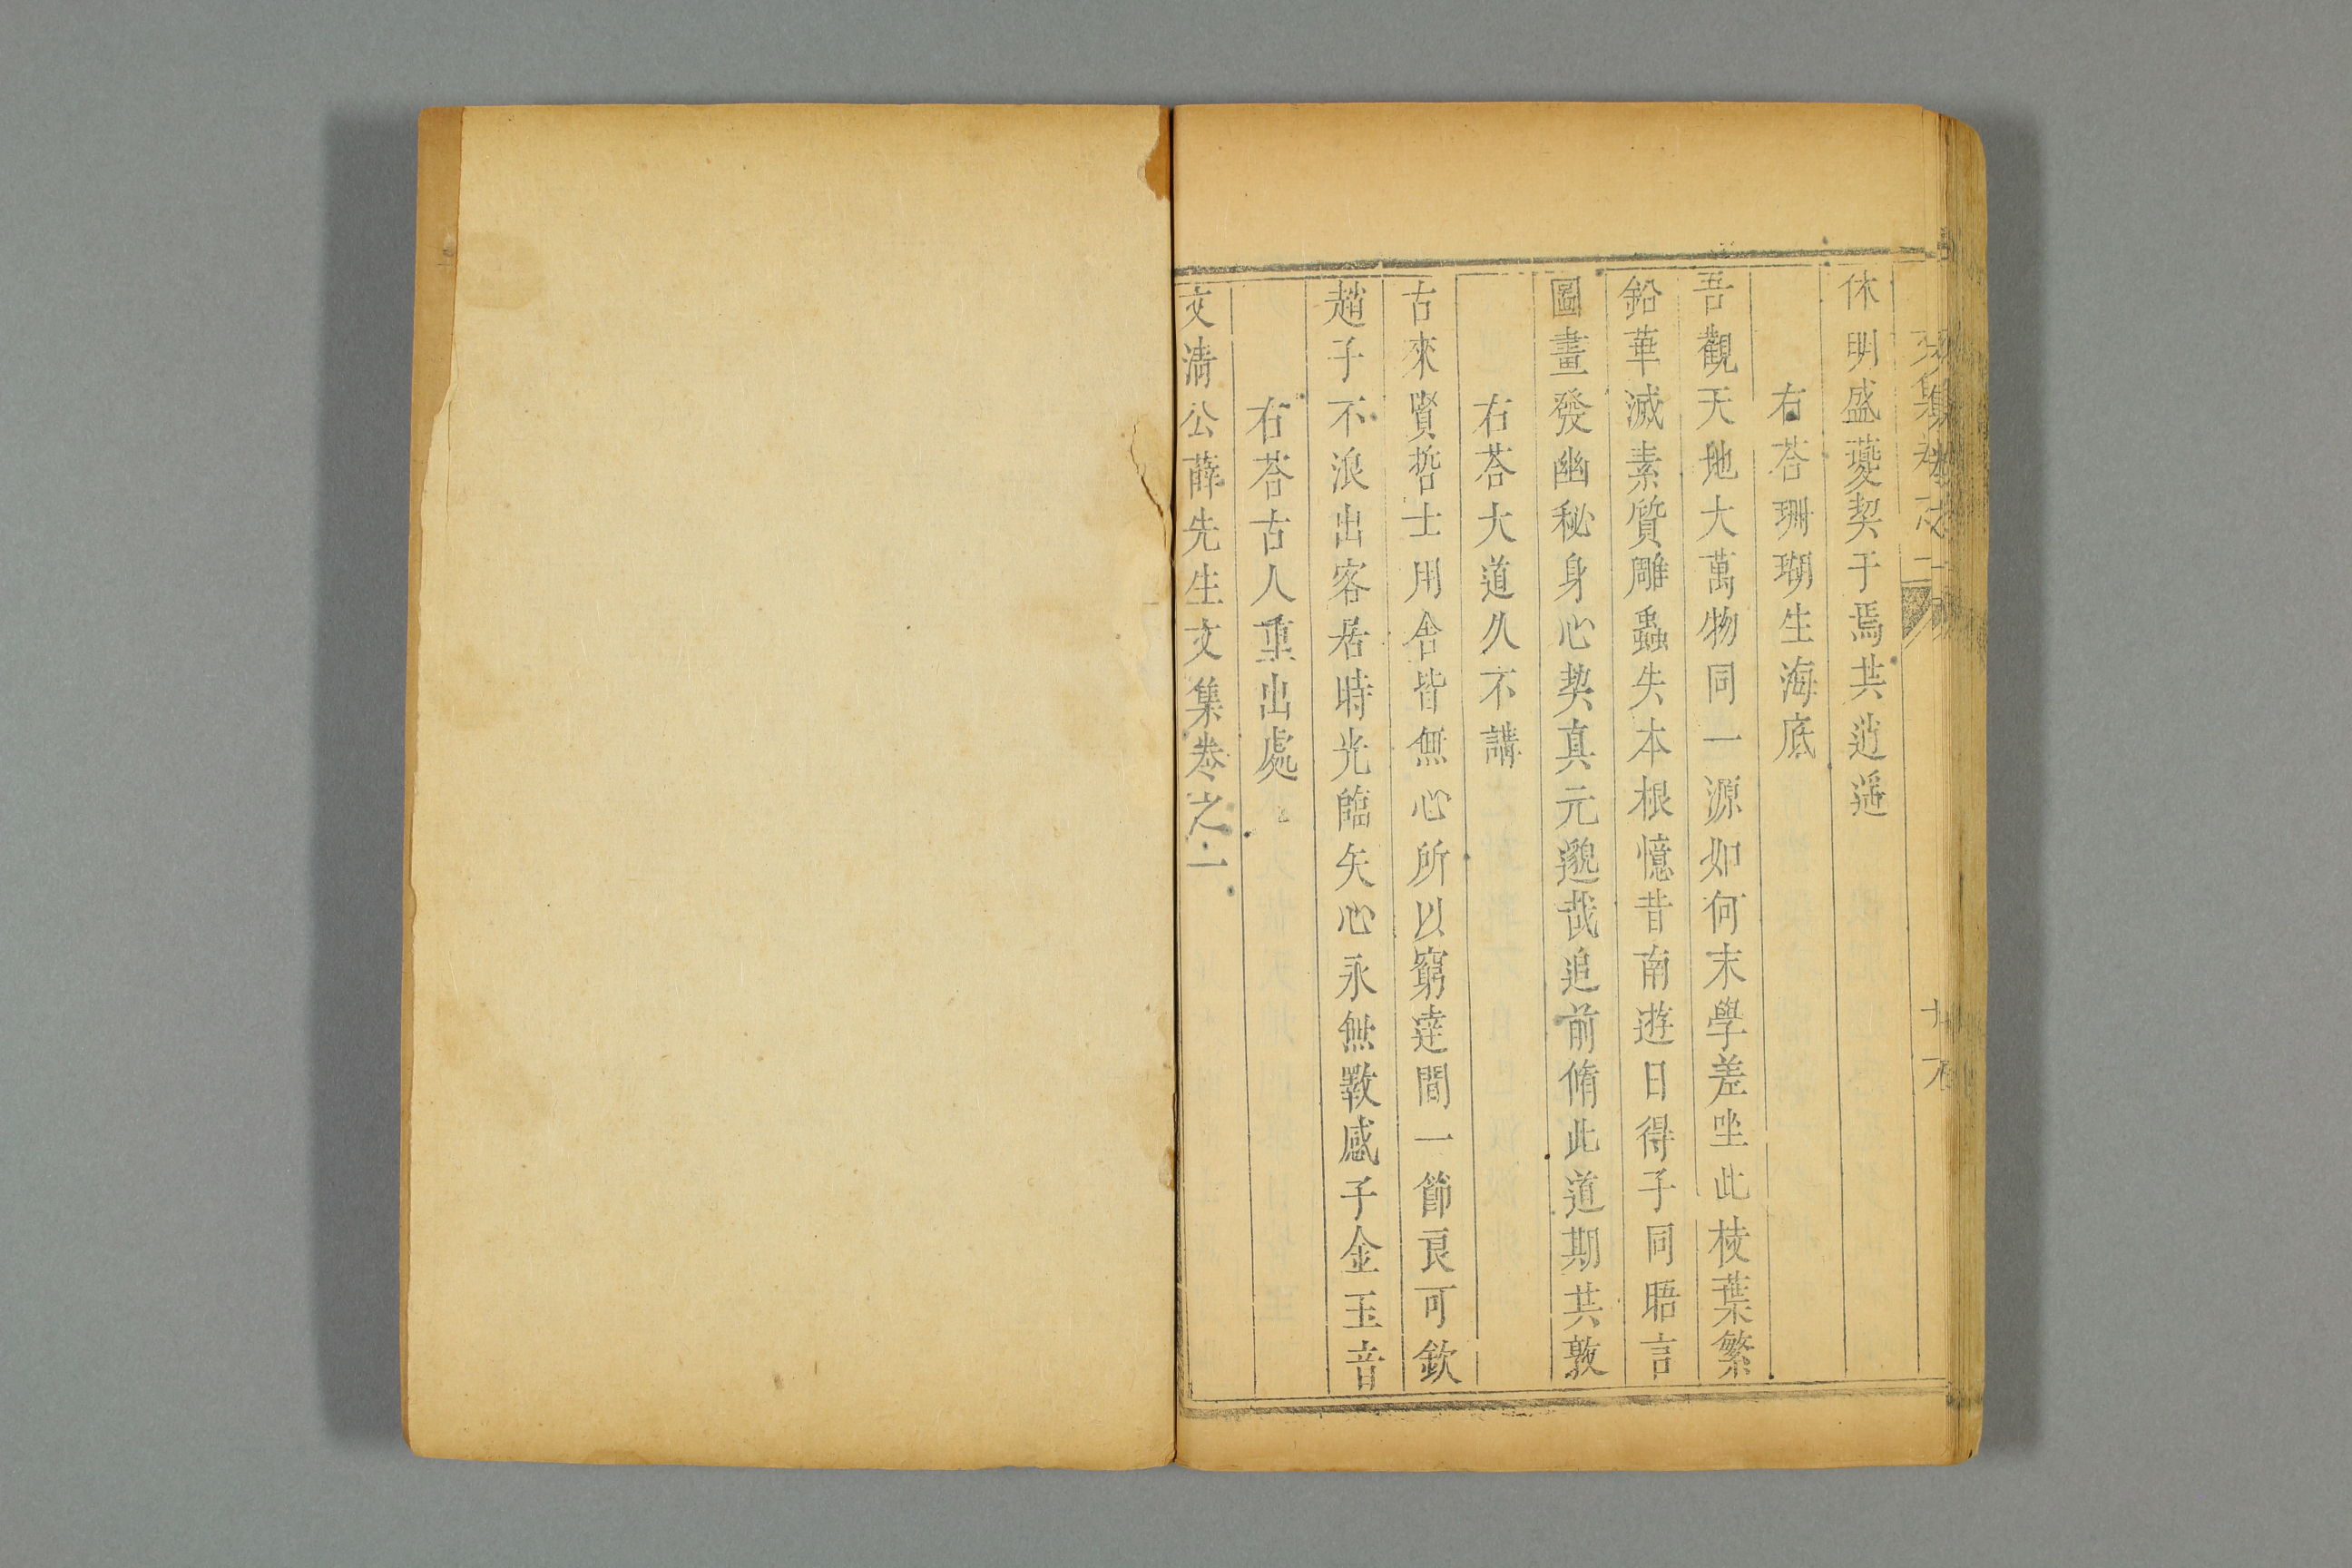 休明盛蘷契于焉共逍遥
右荅珊瑚生海底
吾觀天地大萬物同一源如何末學差坐此枝葉繁
鉛華滅素質雕蟲失本根憶昔南遊日得子同晤言
圖畫發幽秘身心契真元邈哉追前脩此道期共敦
右荅大道久不講
古來賢哲士用舍皆無心所以窮達間一節良可欽
趙子不浪出客居時光臨矢心永無斁感子金玉音
右荅古人重出處
文清公薛先生文集卷之一